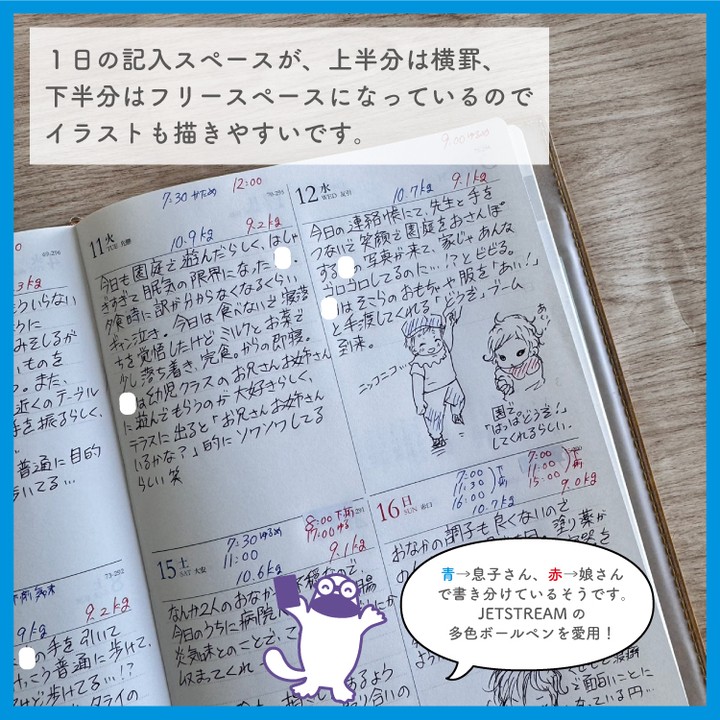 １日の記入スペースが、上半分は横罫、
下半分はフリースペースになっているので
イラストも描きやすいです。
7:30 かため
12:00
70-295
11 火
TUE 先勝
10.9kg
9.2kg
今日も園庭で遊んだらしく、はしゃ
ぎすぎて眠気の限界になった
夕食時に訳が分からなくなるくらい
ギャン泣き。今日は食べないで寝落
ちを覚悟したけどミルクとお茶で
少し落ち着き、完食。からの即寝。
は幼児クラスのお兄さんお姉さん
に遊んでもらうのが大好きらしく、
テラスに出ると「お兄さんお姉さん
いるかな?」的にソワソワしてる
らしい笑
9:00 ゆるめ
12 水
WED 友引
10.7kg
9.1kg
今日の連絡帳にて、先生と手を
つないで笑顔で園庭をおさんぽ
する の写真が来て、家じゃあんな
ゴロゴロしてるのに…!?とビビる。
はそこらのおもちゃや服を「あい!」
と手渡してくれる「どうぞ」ブーム
到来。
ニッコニコ…
あい!
園で、
「はっぱどうぞ!」
してくれるらしい。
69-296
3kg
ういらない
うに
みそしるが
いものを
る。また、
近くのテーブル
手を振るらしく、
普通に目的
歩いてる…
15 土
SAT 大安
7:30 ゆるめ
11:00
10.6kg
8:00 下痢
17:00 ゆる
9.1kg
なんか2人のおなか
今日のうちに病院
炎気味とのことで、
収まってくれ
16 日
SUN 赤口
7:00
11:30
16:00
10.7kg
7:00
11:00
15:00
9.0kg
おなかの調子も良くないので
塗り薬が
73-292
9kg
9.2kg
の手を引いて
けっこう普通に歩けて、
けど歩けてる…!?
青→息子さん、赤→娘さん
で書き分けているそうです。
JETSTREAM の
多色ボールペンを愛用！
で面白いことに
なっている円…